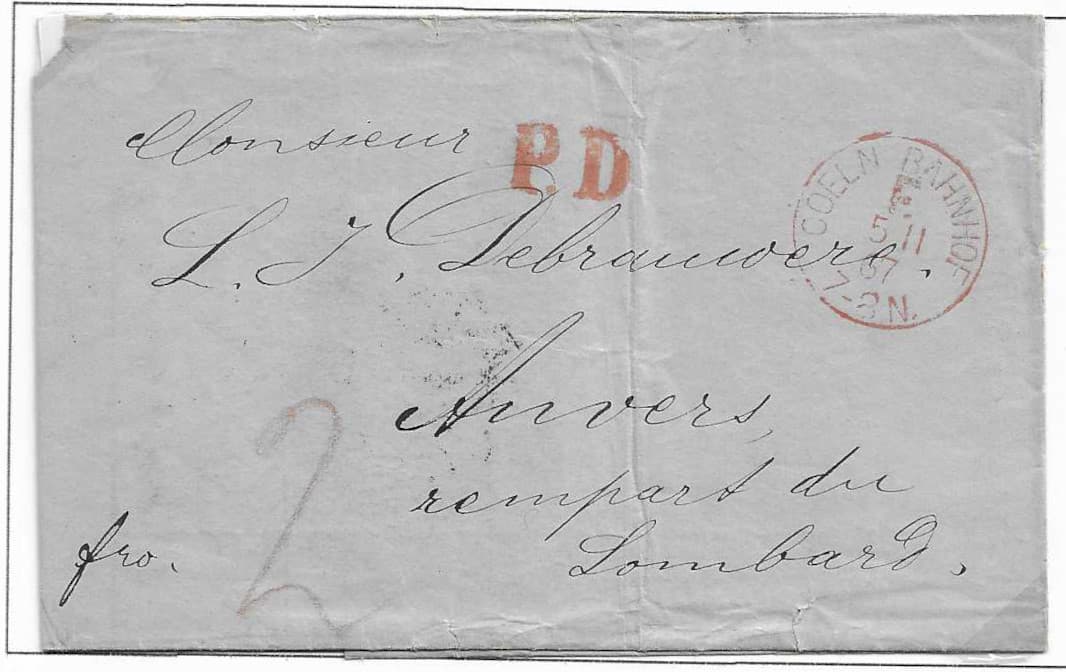 Monsieur
P.D
L. J. Debrauwere.
COELN BAHNHOF
5 11
67
7-8 N.
Anvers,
rempart du
Lombard,
fro.
2